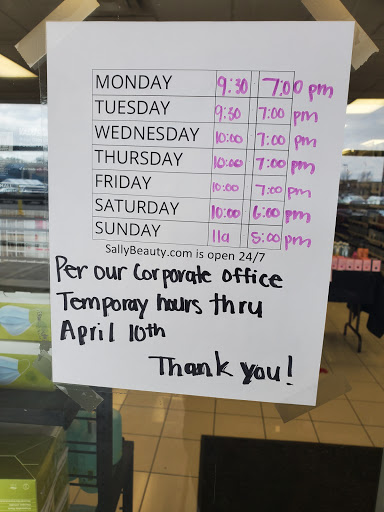 MONDAY 9:30 7:00 pm
TUESDAY 9:30 7:00 pm
WEDNESDAY 10:00 7:00 pm
THURSDAY 10:00 7:00 pm
FRIDAY 10:00 7:00 pm
SATURDAY 10:00 6:00 pm
SUNDAY 11a 5:00 pm
SallyBeauty.com is open 24/7
Per our Corporate office
Temporay hours thru
April 10th
Thank you!